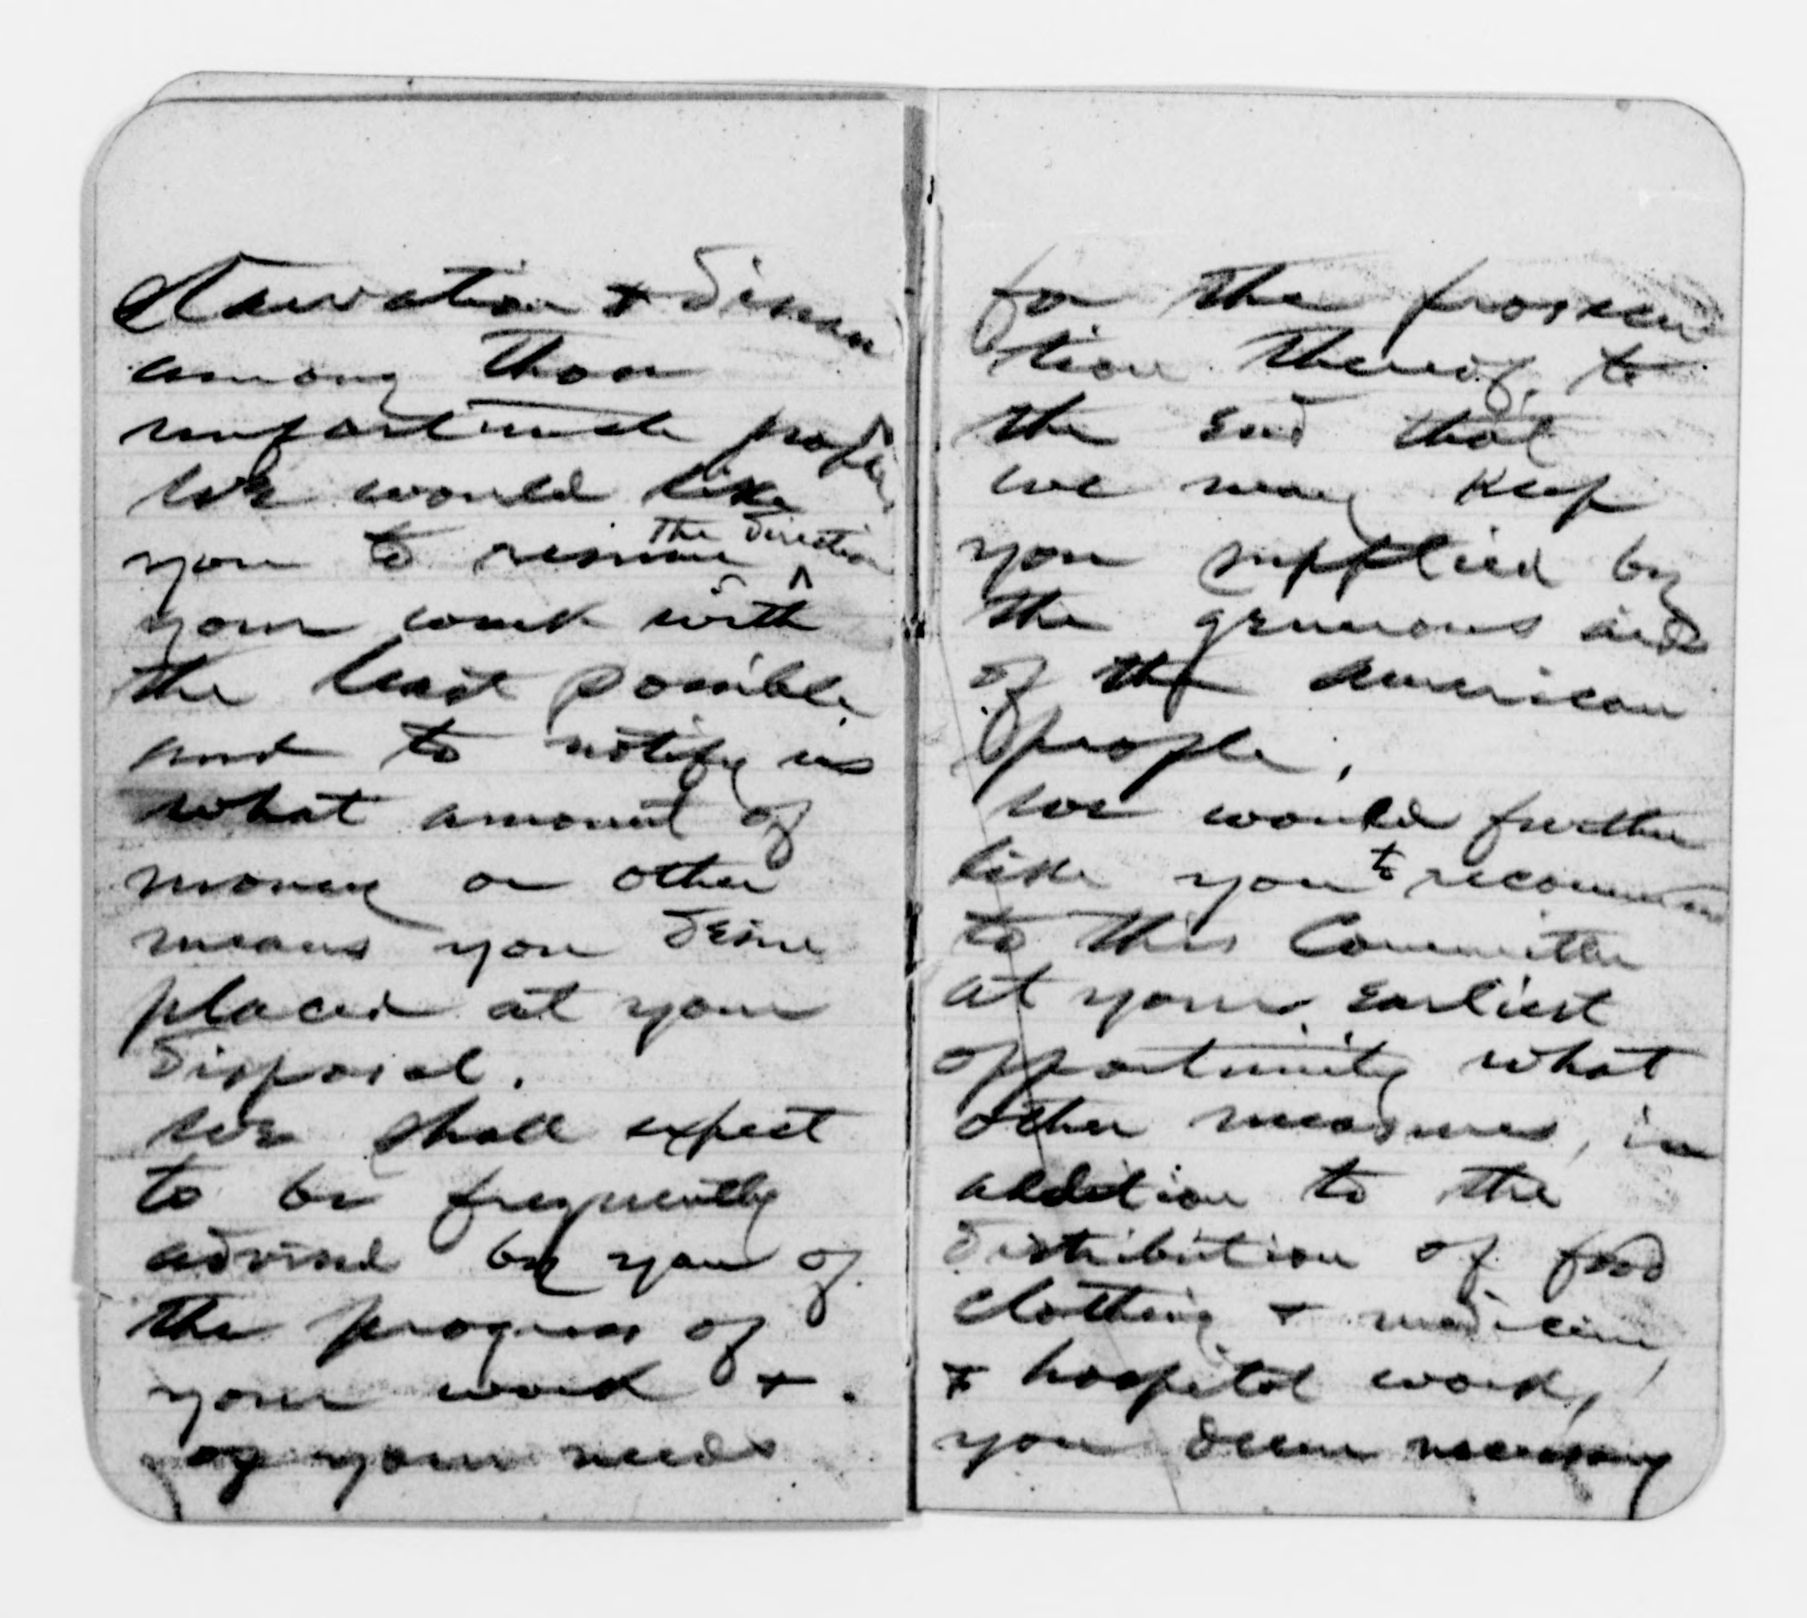 Starvation & Disease
among those
unfortunate people
We would like
you to resume
the direction
your work with
the least possible
and to notify us
what amount of
money or other
means you desire
placed at your
disposal.
We shall expect
to be frequently
advised by you of
the progress of
your work &
of your needs
for the prosecu
tion thereof, to
the end that
we may keep
you supplied by
the generous aid
of the American
people.
We would further
like you to recommend
to this Committee
at your earliest
opportunity what
other measures, in
addition to the
distribution of food
clothing & medicine,
& hospital work,
you deem necessary